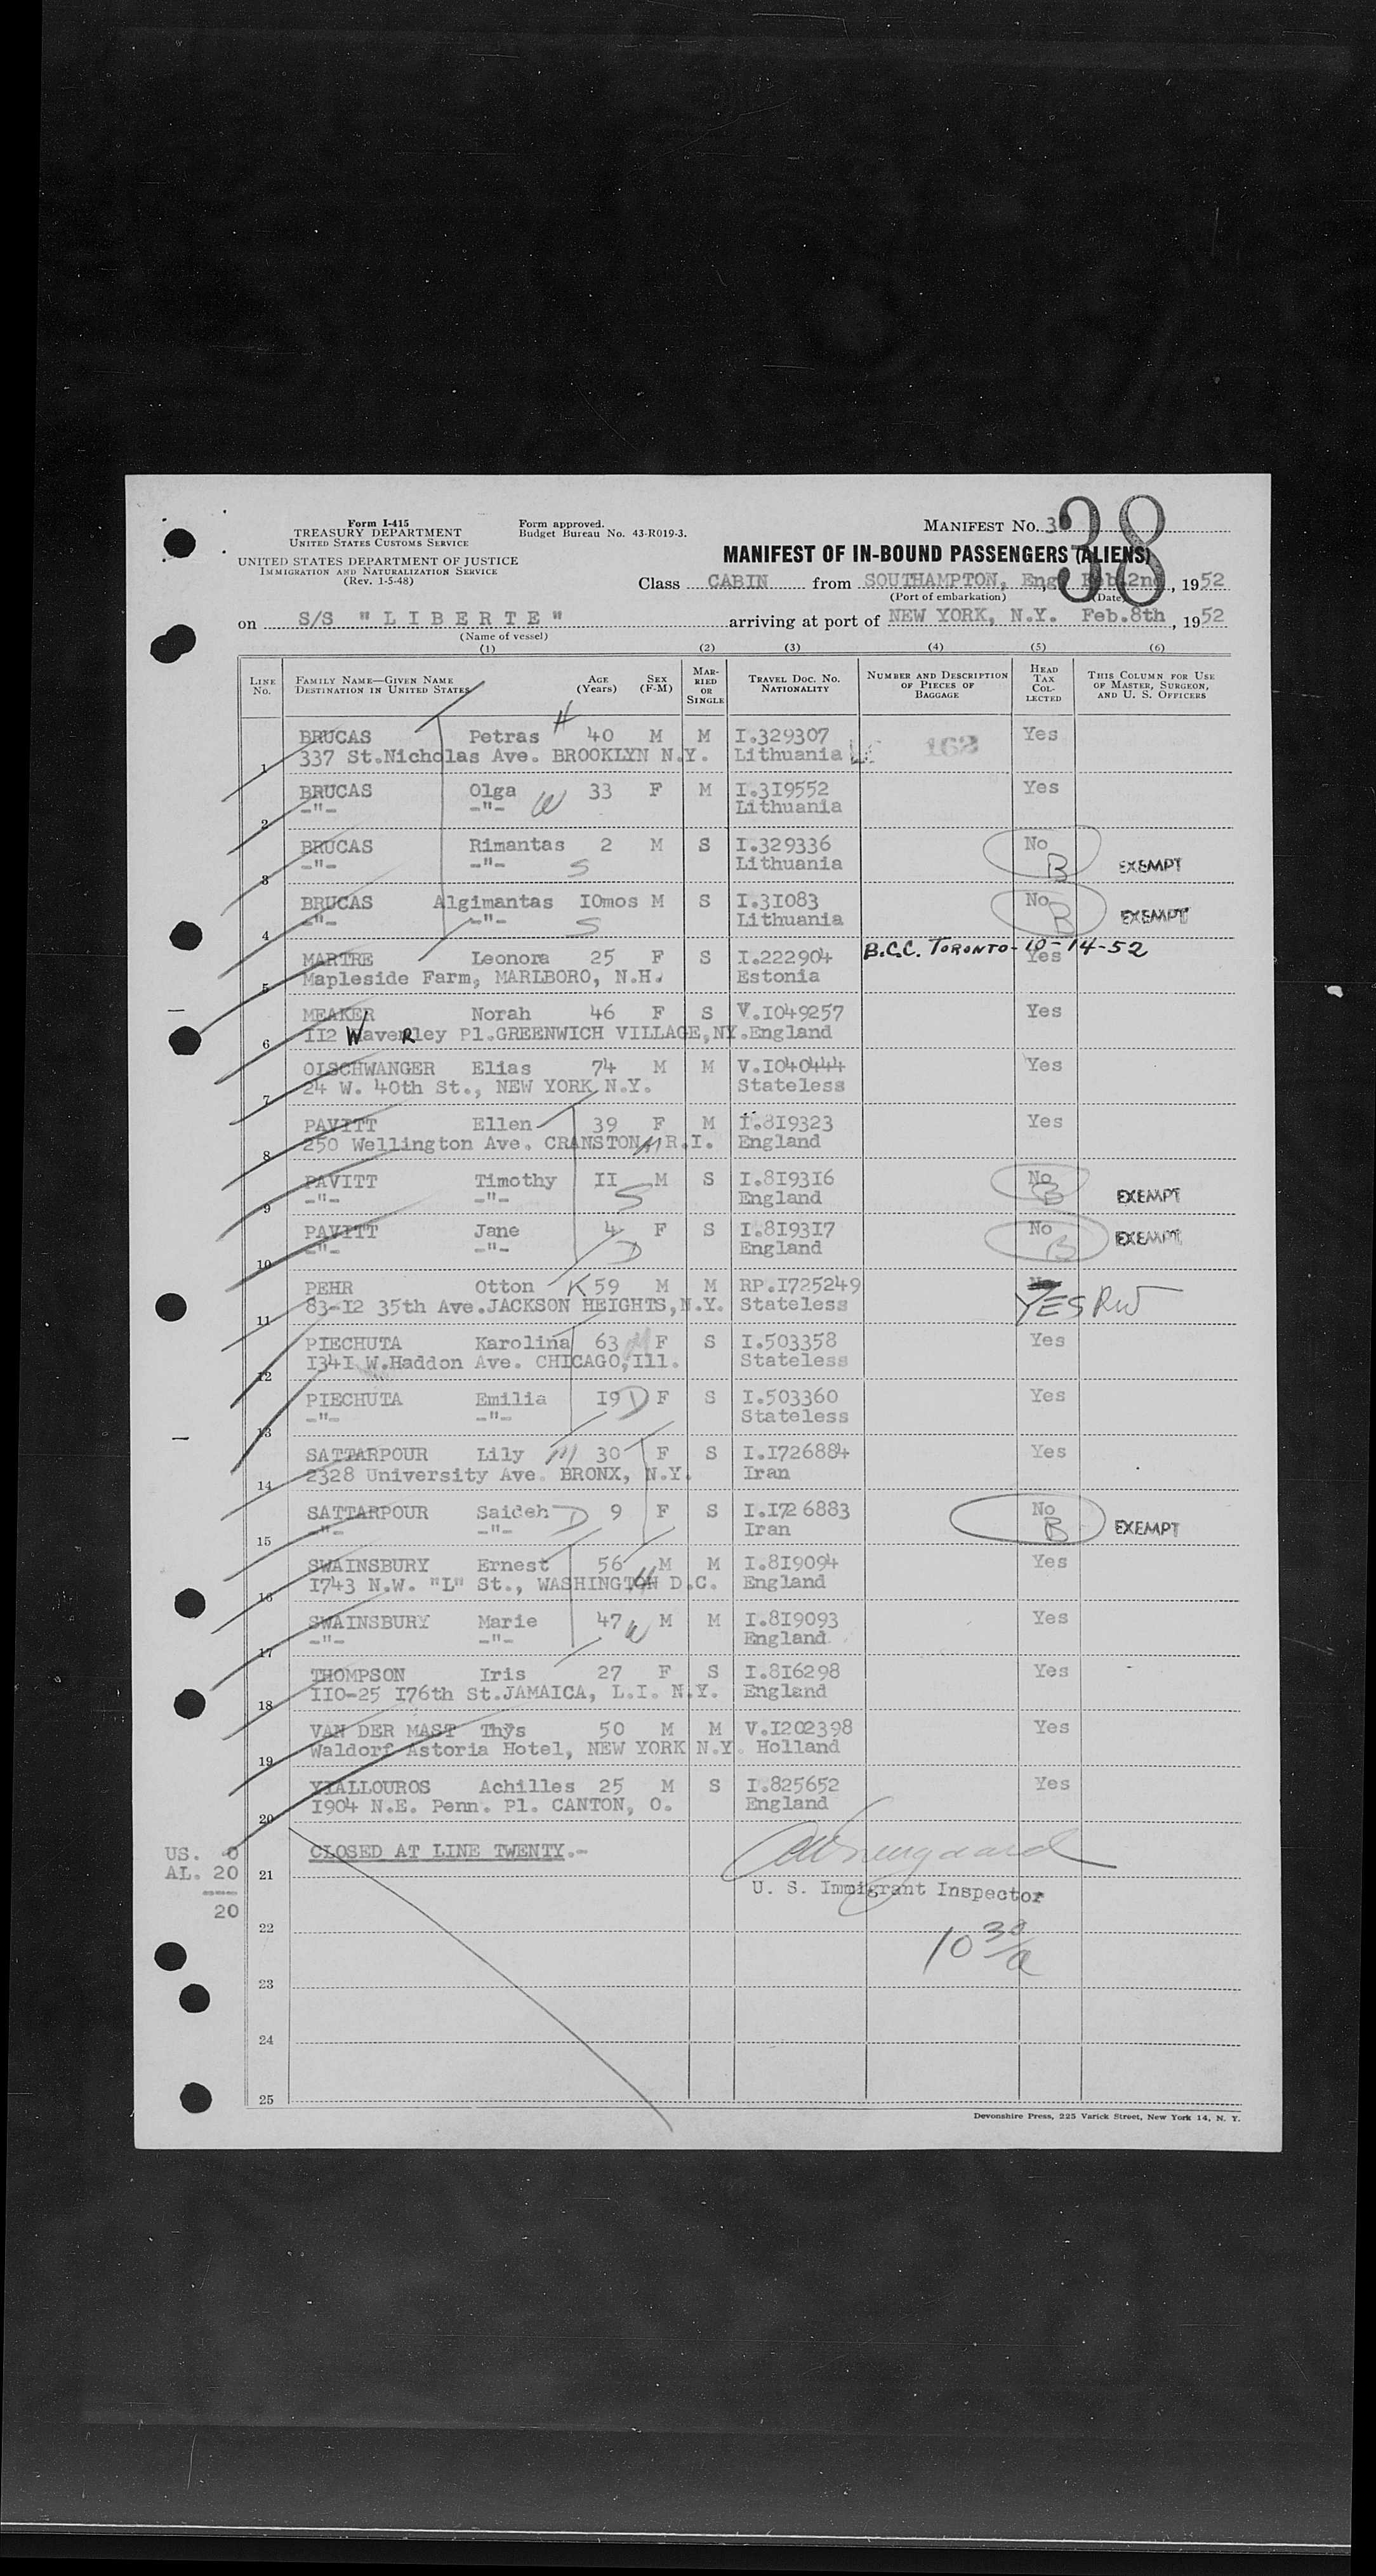 Form I-415
TREASURY DEPARTMENT
UNITED STATES CUSTOMS SERVICE
UNITED STATES DEPARTMENT OF JUSTICE
IMMIGRATION AND NATURALIZATION SERVICE
(Rev. 1-5-48)
Form approved.
Budget Bureau No. 43-R019-3.
MANIFEST No. 3
38
MANIFEST OF IN-BOUND PASSENGERS (ALIENS)
Class CABIN from SOUTHAMPTON, Eng, Feb.2nd, 1952
(Port of embarkation) (Date)
on S/S "LIBERTE" arriving at port of NEW YORK, N.Y. Feb.8th, 1952
(Name of vessel)
(1) (2) (3) (4) (5) (6)
LINE No. FAMILY NAME—GIVEN NAME DESTINATION IN UNITED STATES AGE (Years) SEX (F-M) MARRIED OR SINGLE TRAVEL DOC. NO. NATIONALITY NUMBER AND DESCRIPTION OF PIECES OF BAGGAGE HEAD TAX COLLECTED THIS COLUMN FOR USE OF MASTER, SURGEON, AND U. S. OFFICERS
BRUCAS Petras H 40 M M I.329307 Yes
1 337 St.Nicholas Ave. BROOKLYN N.Y. Lithuania 162
BRUCAS Olga W 33 F M I.3I9552 Yes
2 -"- -"- Lithuania
BRUCAS Rimantas 2 M S I.329336 No
3 -"- -"- S Lithuania B EXEMPT
BRUCAS Algimantas IOmos M S I.3I083 No
4 -"- -"- S Lithuania B EXEMPT
B.C.C. TORONTO-10-14-52
MARTRE Leonora 25 F S I.222904 Yes
5 Mapleside Farm, MARLBORO, N.H. Estonia
MEAKER Norah 46 F S V.I049257 Yes
6 II2 WaveRley Pl.GREENWICH VILLAGE,NY.England
OISCHWANGER Elias 74 M M V.I040444 Yes
7 24 W. 40th St., NEW YORK N.Y. Stateless
PAVITT Ellen 39 F M I.8I9323 Yes
8 250 Wellington Ave. CRANSTON, M R.I. England
PAVITT Timothy II M S I.8I93I6 No
9 -"- -"- S England B EXEMPT
PAVITT Jane 4 F S I.8I93I7 No
10 -"- -"- D England B EXEMPT
PEHR Otton K 59 M M RP.I725249 YES RW
11 83-I2 35th Ave.JACKSON HEIGHTS,N.Y. Stateless
PIECHUTA Karolina 63 M F S I.503358 Yes
12 I34I W.Haddon Ave. CHICAGO,Ill. Stateless
PIECHUTA Emilia I9 D F S I.503360 Yes
13 -"- -"- Stateless
SATTARPOUR Lily M 30 F S I.I726884 Yes
14 2328 University Ave. BRONX, N.Y. Iran
SATTARPOUR Saideh D 9 F S I.I726883 No
15 -"- -"- Iran B EXEMPT
SWAINSBURY Ernest 56 M M I.8I9094 Yes
16 I743 N.W. "L" St., WASHINGTON D.C. H England
SWAINSBURY Marie 47 W M M I.8I9093 Yes
17 -"- -"- England
THOMPSON Iris 27 F S I.8I6298 Yes
18 IIO-25 I76th St.JAMAICA, L.I. N.Y. England
VAN DER MAST Thys 50 M M V.I202398 Yes
19 Waldorf Astoria Hotel, NEW YORK N.Y. Holland
YIALLOUROS Achilles 25 M S I.825652 Yes
20 I904 N.E. Penn. Pl. CANTON, O. England
US. 0
CLOSED AT LINE TWENTY.-
AL. 20
21
U. S. Immigrant Inspector
---
20
22
10 30/a
23
24
25
Devonshire Press, 225 Varick Street, New York 14, N. Y.